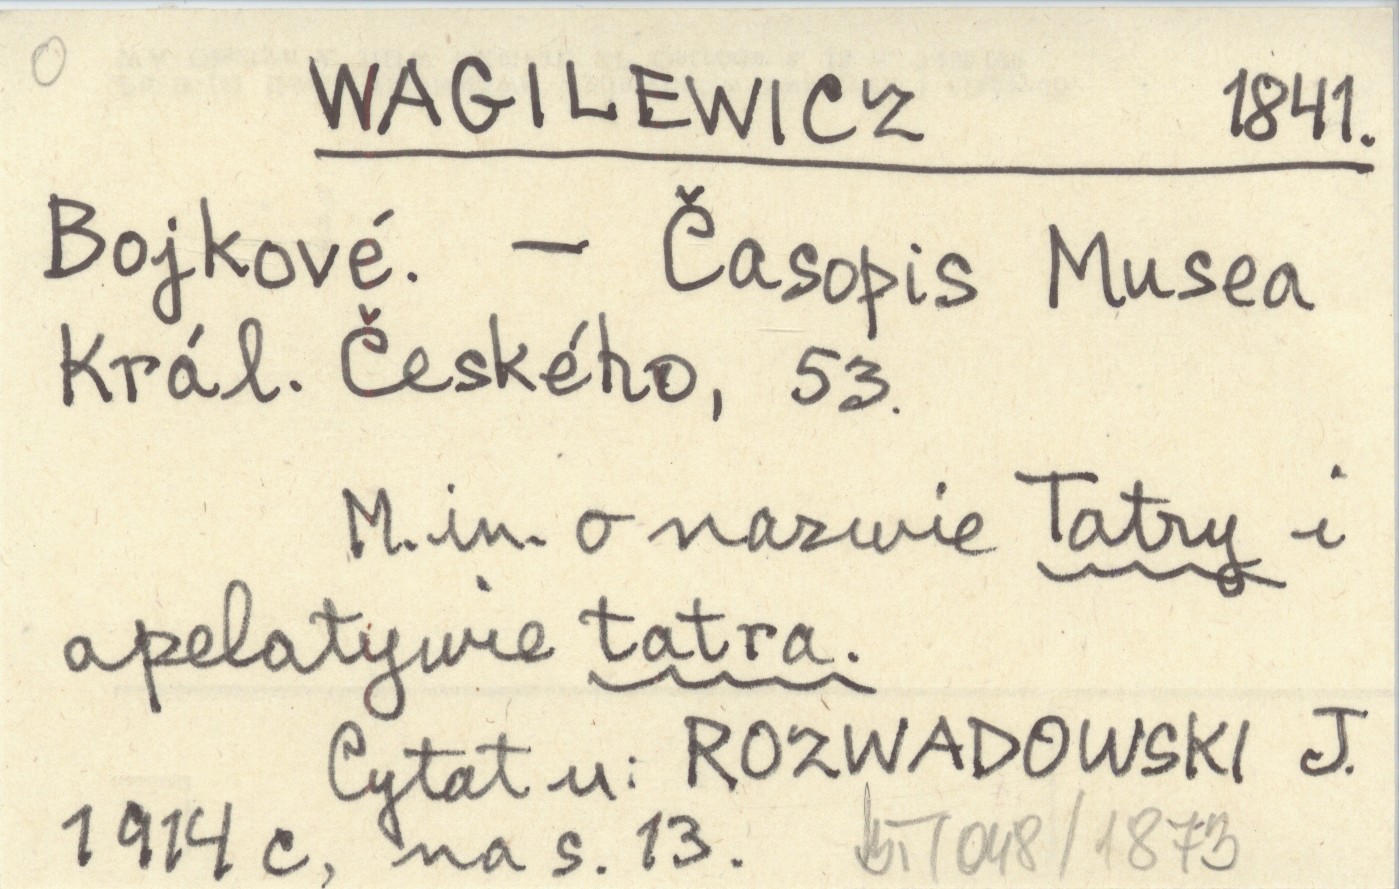 WAGILEWICZ 1841.
Bojkové. — Časopis Musea
Král. Českého, 53.
M.in. o nazwie Tatry i
apelatywie tatra.
Cytat u: ROZWADOWSKI J.
1914 c, na s. 13.
048/1873